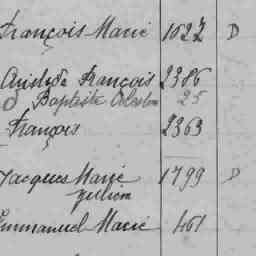 François Marie 1022 D
Aristide François 2386
Baptiste Celestin 25
François 2363
Jacques Marie 1799 D
Emmanuel Marie 461